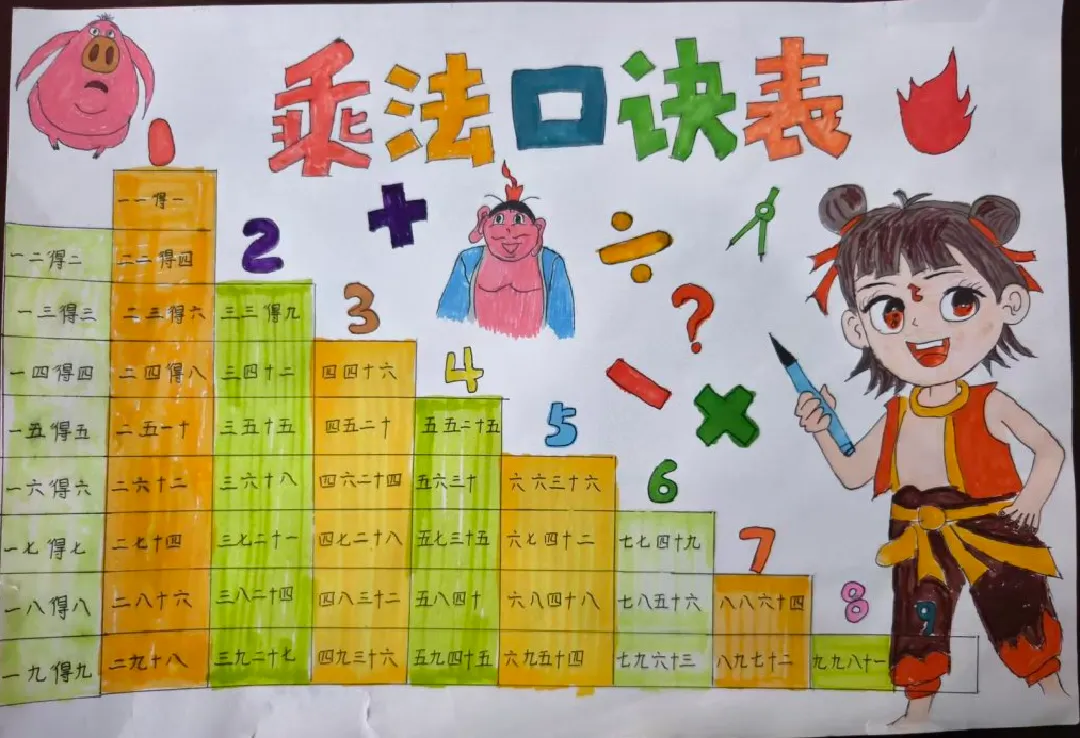 乘法口诀表
1
一一得一
2
+
÷
一二得二 二二得四
3
?
一三得三 二三得六 三三得九
4
−
×
一四得四 二四得八 三四十二 四四十六
5
一五得五 二五一十 三五十五 四五二十 五五二十五
6
一六得六 二六十二 三六十八 四六二十四 五六三十 六六三十六
7
一七得七 二七十四 三七二十一 四七二十八 五七三十五 六七四十二 七七四十九
8
9
一八得八 二八十六 三八二十四 四八三十二 五八四十 六八四十八 七八五十六 八八六十四
一九得九 二九十八 三九二十七 四九三十六 五九四十五 六九五十四 七九六十三 八九七十二 九九八十一